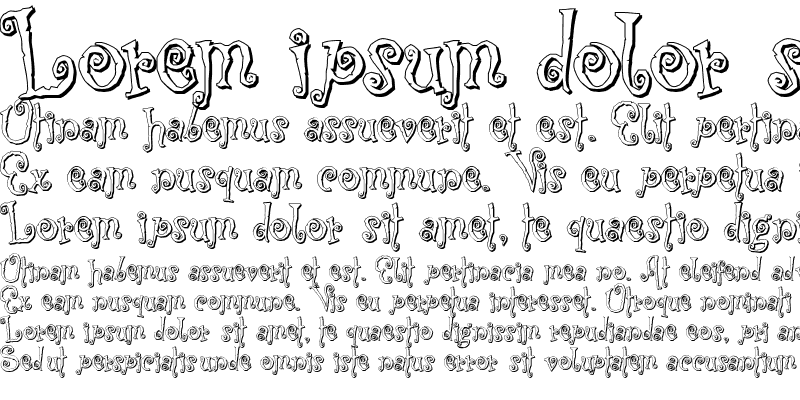 Lorem ipsum dolor s
Utinam habemus assueverit et est. Elit pertina
Ex eam nusquam commune. Vis eu perpetua
Lorem ipsum dolor sit amet, te quaestio digni
Utinam habemus assueverit et est. Elit pertinacia mea no. At eleifend adv
Ex eam nusquam commune. Vis eu perpetua interesset. Utroque nominati
Lorem ipsum dolor sit amet, te quaestio dignissim repudiandae eos, pri an
Sed ut perspiciatis unde omnis iste natus error sit voluptatem accusantium